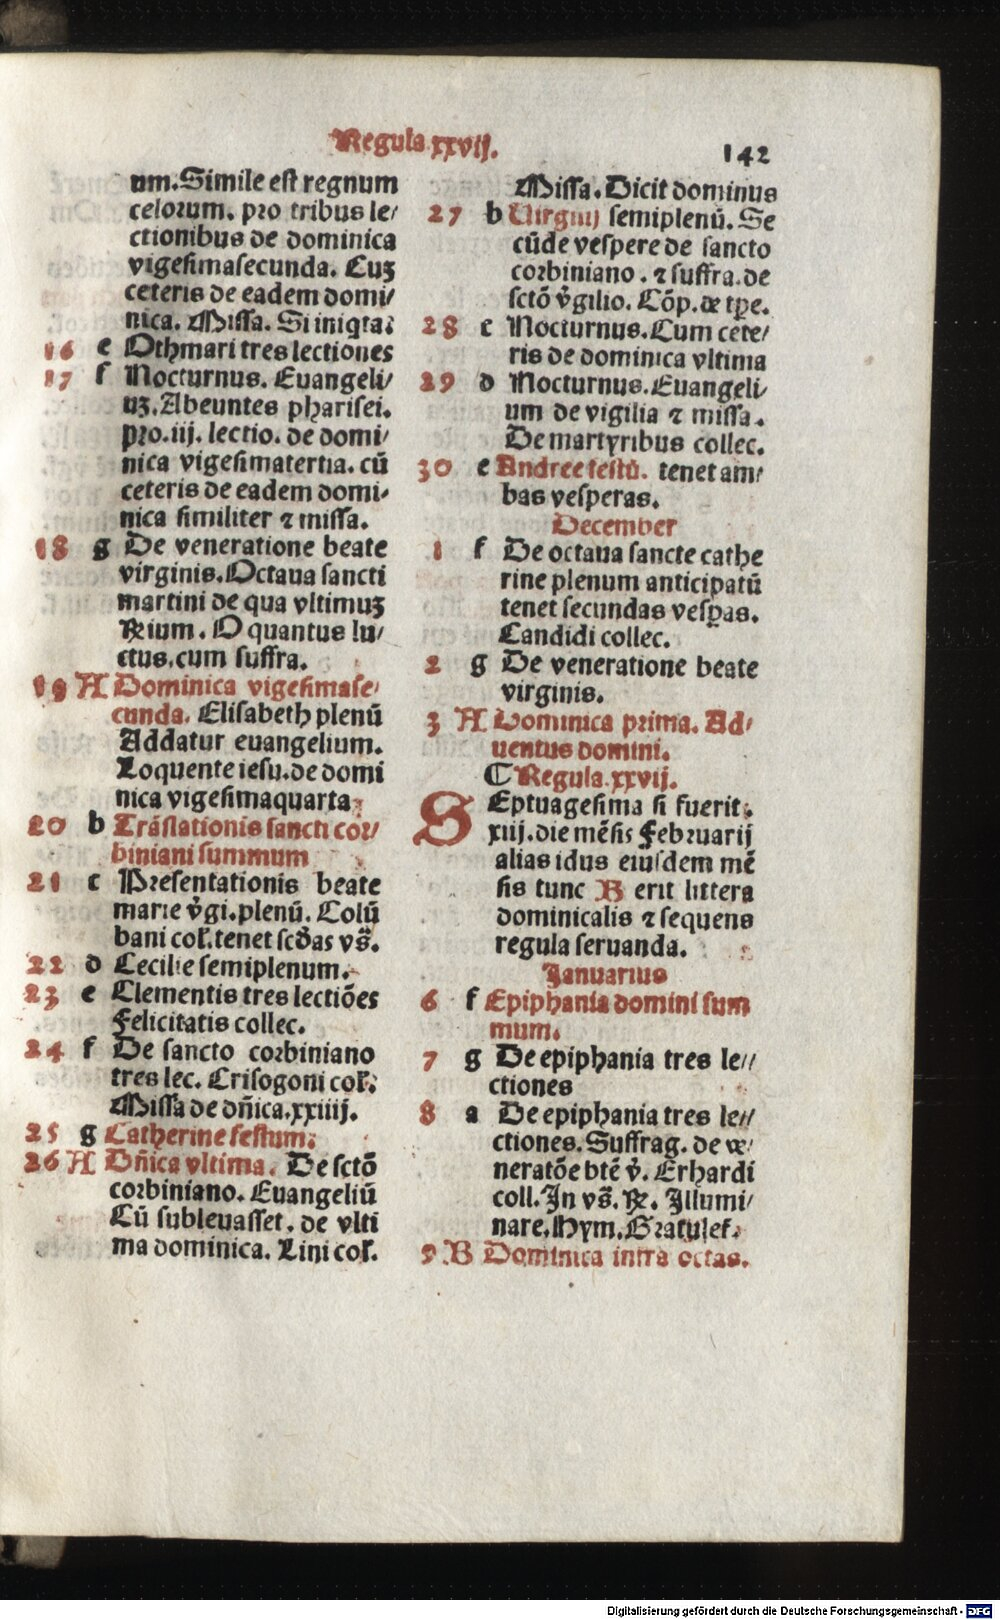 Regula xxvij.
142
um. Simile est regnum
celorum. pro tribus le/
ctionibus de dominica
vigesimasecunda. Cuʒ
ceteris de eadem domi/
nica. Missa. Si iniqta:
16 e Othmari tres lectiones
17 f Nocturnus. Euangeli/
uʒ. Abeuntes pharisei.
pro .iij. lectio. de domi/
nica vigesimatertia. cū
ceteris de eadem domi/
nica similiter ⁊ missa.
18 g De veneratione beate
virginis. Octaua sancti
martini de qua vltimuʒ
℞ium. O quantus lu/
ctus. cum suffra.
19 A Dominica vigesimase/
cunda. Elisabeth plenū
Addatur euangelium.
Loquente iesu. de domi
nica vigesimaquarta
20 b Trāslationis sancti cor/
biniani summum
21 c Presentationis beate
marie v̄gi. plenū. Colū
bani col. tenet scd̄as vs̄.
22 d Cecilie semiplenum.
23 e Clementis tres lectiōes
Felicitatis collec.
24 f De sancto corbiniano
tres lec. Crisogoni col.
Missa de dn̄ica. xxiiij.
25 g Catherine festum:
26 A Dn̄ica vltima. De sctō
corbiniano. Euangeliū
Cū subleuasset. de vlti
ma dominica. Lini col.
Missa. Dicit dominus
27 b Virgilij semiplenū. Se
cūde vespere de sancto
corbiniano. ⁊ suffra. de
sctō v̄gilio. Cōp. de tp̄e.
28 c Nocturnus. Cum cete/
ris de dominica vltima
29 d Nocturnus. Euangeli/
um de vigilia ⁊ missa.
De martyribus collec.
30 e Andree festū. tenet am/
bas vesperas.
December
1 f De octaua sancte cathe
rine plenum anticipatū
tenet secundas vesp̄as.
Candidi collec.
2 g De veneratione beate
virginis.
3 A Dominica prima. Ad/
uentus domini.
¶ Regula. xxvij.
SEptuagesima si fuerit.
xiij. die mēsis Februarij
alias idus eiusdem mē
sis tunc B erit littera
dominicalis ⁊ sequens
regula seruanda.
Januarius
6 f Epiphania domini sum
mum.
7 g De epiphania tres le//
ctiones
8 a De epiphania tres le//
ctiones. Suffrag. de ve/
neratōe btē v̄. Erhardi
coll. In vs̄. ℞. Illumi/
nare. Hym. Gratulet.
9 B Dominica infra octas.
Digitalisierung gefördert durch die Deutsche Forschungsgemeinschaft - DFG